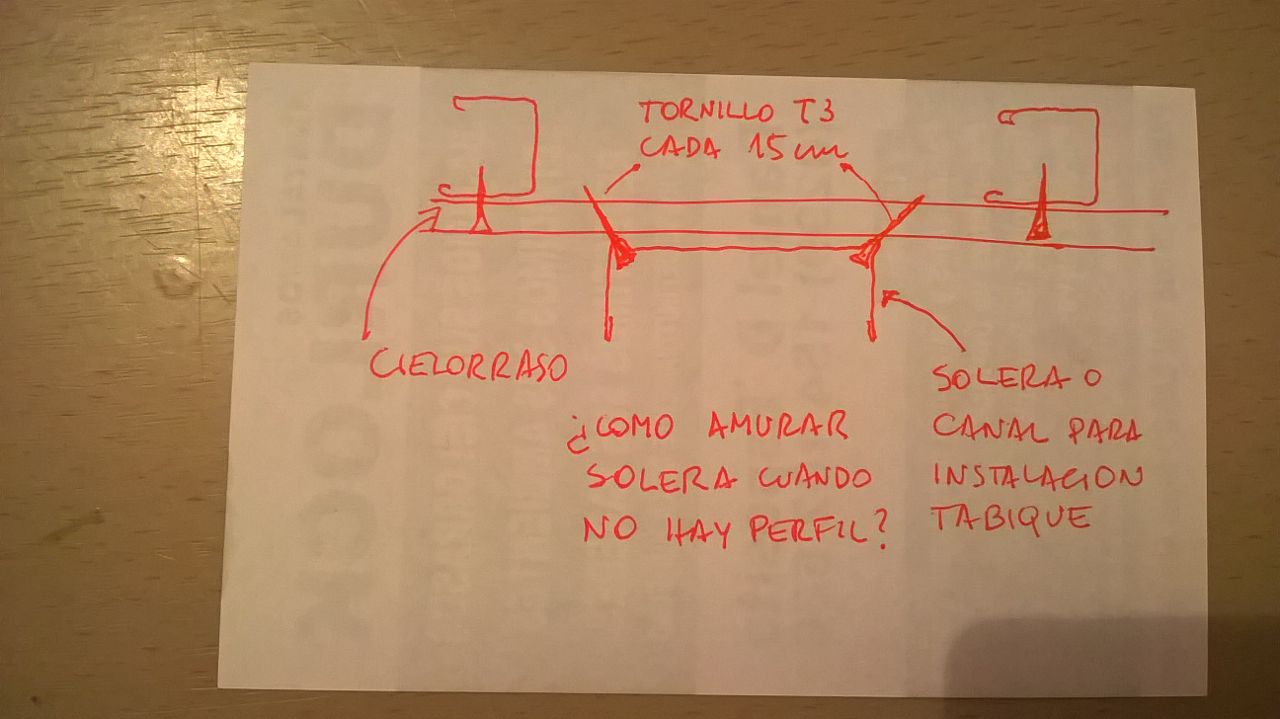 TORNILLO T3
CADA 15 cm
CIELORRASO
¿COMO AMURAR
SOLERA CUANDO
NO HAY PERFIL?
SOLERA O
CANAL PARA
INSTALACION
TABIQUE